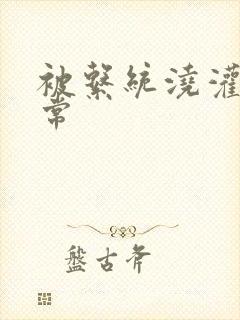 被繫統澆灌
常
盤古斧